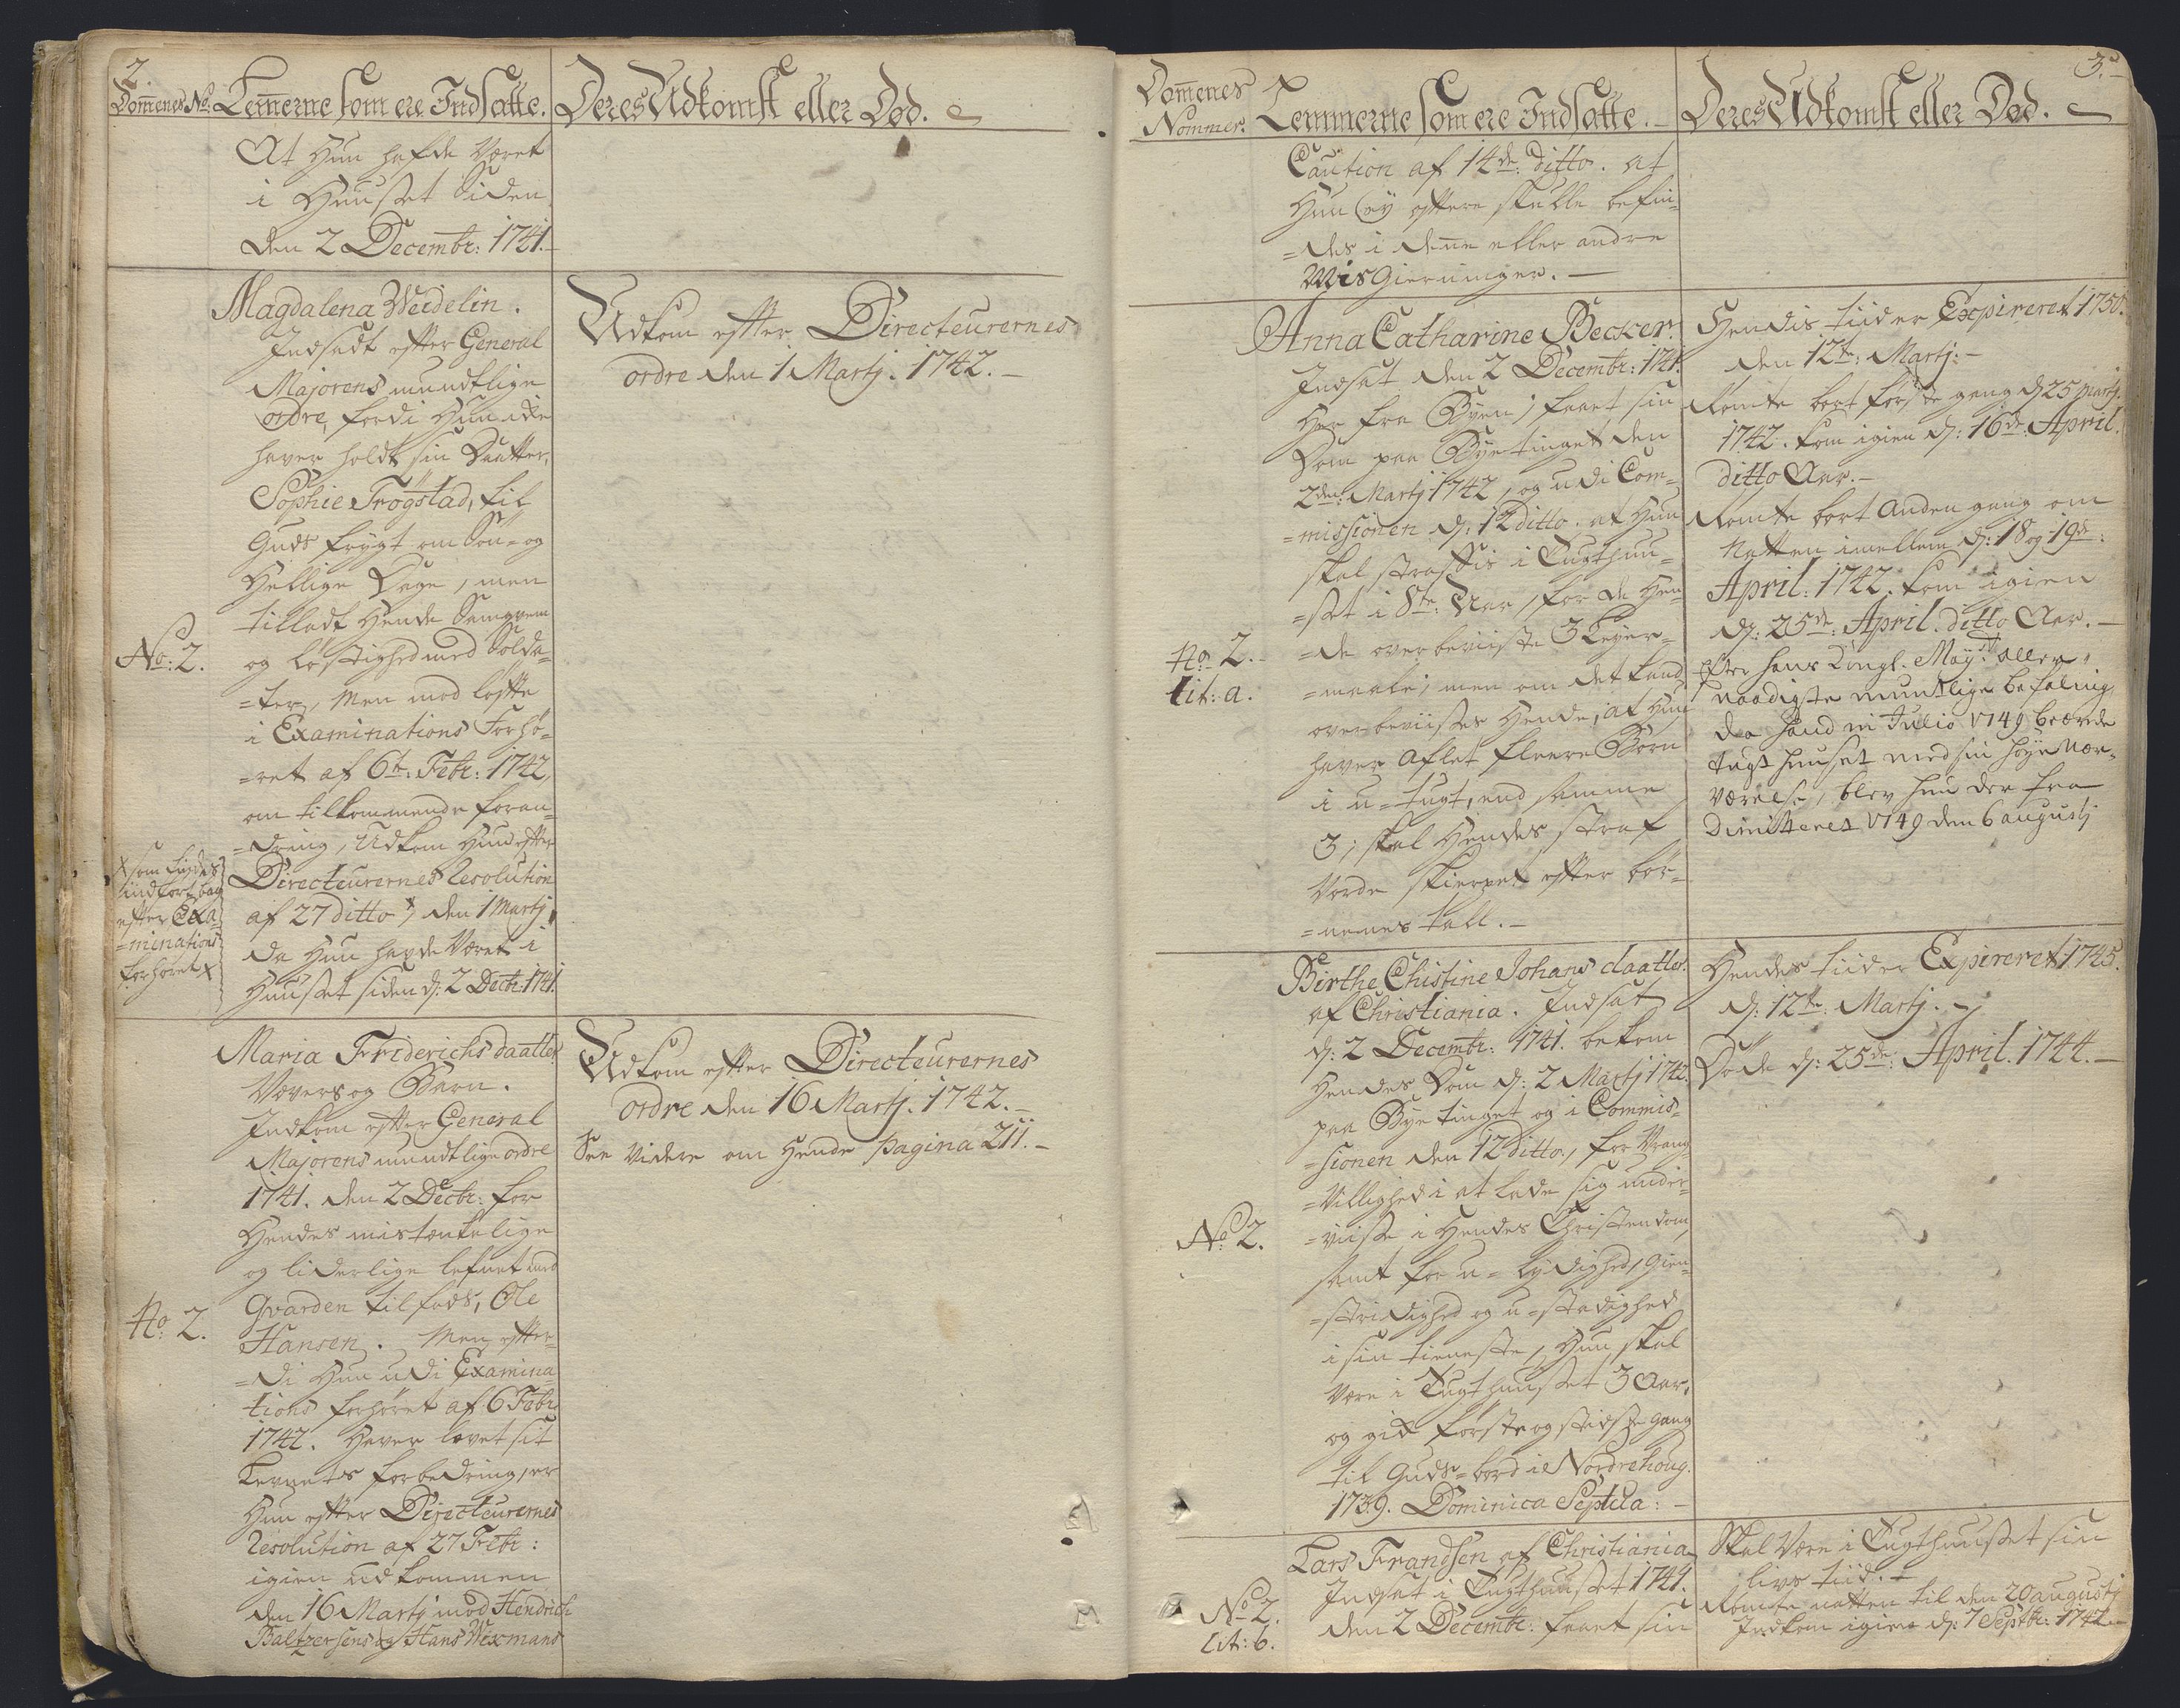 2.
Domenes No.
Lemmerne som ere Indsatte.
Deres Udkomst eller Død.
At Hun hafde Været
i Huusset Siden
den 2 Decembr: 1741.
Magdalena Weidelin.
Indsadt efter General
Majorens mundtlige
ordre, fordi Hun icke
haver holdt sin Daatter,
Sophie Trögstad, til
Guds frygt om Søn= og
Hellige Dage, men
tilladt Hende Samqvem
og løstighed med Solda=
=ter, Men mod løffte
i Examinations Forhø=
=ret af 6te: Febr: 1742,
om tilkommende foran=
=dring, Udkom Hun efter
Directeurernes Resolution
af 27 ditto x, den 1 Martj,
da Hun hafde Været i
Huusset siden d: 2 Decbr: 1741.
No: 2.
x som findes
indført bag
efter Exa=
=minations
forhøret x
Udkom efter Directeurernes
ordre den 1 Martj. 1742.
Maria Friderichsdaatter
Wævers og Barn.
Indkom efter General
Majorens mundtlige ordre
1741. den 2 Decbr: for
Hendes mistænkelige
og liderlige lefnet med
Gvarden til fods, Ole
Hansen. Men efter=
=di Hun udi Examina=
tions forhøret af 6 Febr:
1742. Haver lovet sit
Levnets forbedring, er
Hun efter Directeurernes
Resolution af 27 Febr:
igien udkommen
den 16 Martj mod Hendrich
Baltzersens og Hans Wexmans
No: 2.
Udkom efter Directeurernes
ordre den 16 Martj. 1742.
See videre om Hende pagina 211.
3.
Domenes
Nommer.
Lemmerne som ere Indsatte.
Deres Udkomst eller Død.
Caution af 14de: ditto. at
Hun ey oftere skulle befin=
=des i denne eller andre
Misgierninger.
Anna Catharine Becker.
Indsat den 2 Decembr: 1741.
Her fra Byen, faaet sin
Dom paa Byetinget den
2den: Martj 1742, og udi Com=
=missionen d: 12 ditto. at Hun
skal straffis i Tugthuu=
=set i 8te: Aar, for de Hen=
=de overbeviiste 3 Leyer=
=maale, men om det kand
overbeviises Hende, at Hun
haver Aflet fleere Børn
i u=tugt, end samme
3, skal Hendes straf
Vorde skierpet efter bør=
=nenes tall.
No: 2.
Lit: a.
Hendis tiider Expireret 1750.
den 12te: Martj.
Rømte bort første gang d: 25 Martj
1742. kom igien d: 16de: April.
ditto Aar.
Rømte bort Anden gang om
Natten imellem d: 18 og 19de:
April: 1742. kom igien
d: 25de: April. ditto Aar.
Efter Hans Kongl. May:tt aller
naadigste mundtlige befaling,
da hand in Julio 1749 beærede
tugthuuset med sin høye nær=
værelse, blev hun der fra
Dimitteret 1749 den 6 augustj
Birthe Chistine Johans daatter
af Christiania. Indsat
d: 2 Decembr: 1741. bekom
Hendes Dom d: 2 Martj 1742.
paa Byetinget og i Commis=
=sionen den 12 ditto, for Vrang=
=Villighed i at lade sig under=
=viise i Hendes Christendom,
samt for u=lydighed, gien=
=stridighed og u=stadighed
i sin tieneste, Hun skal
Være i Tugthuusset 3 Aar,
og gik første og sidste gang
til Guds=bord i Nordrehoug.
1739. Dominica Septua:
No: 2.
Hendes tiider Expireret 1745.
d: 12te: Martj.
Døde d: 25de: April. 1744.
Lars Frandsen af Christiania
Indsat i Tugthuusset 1741.
den 2 Decembr: faaet sin
No: 2.
Lit: b.
Skal Være i Tugthuusset sin
livs tiid.
Rømte natten til den 20 augustj
Indkom igien d: 7 Septbr: 1742.